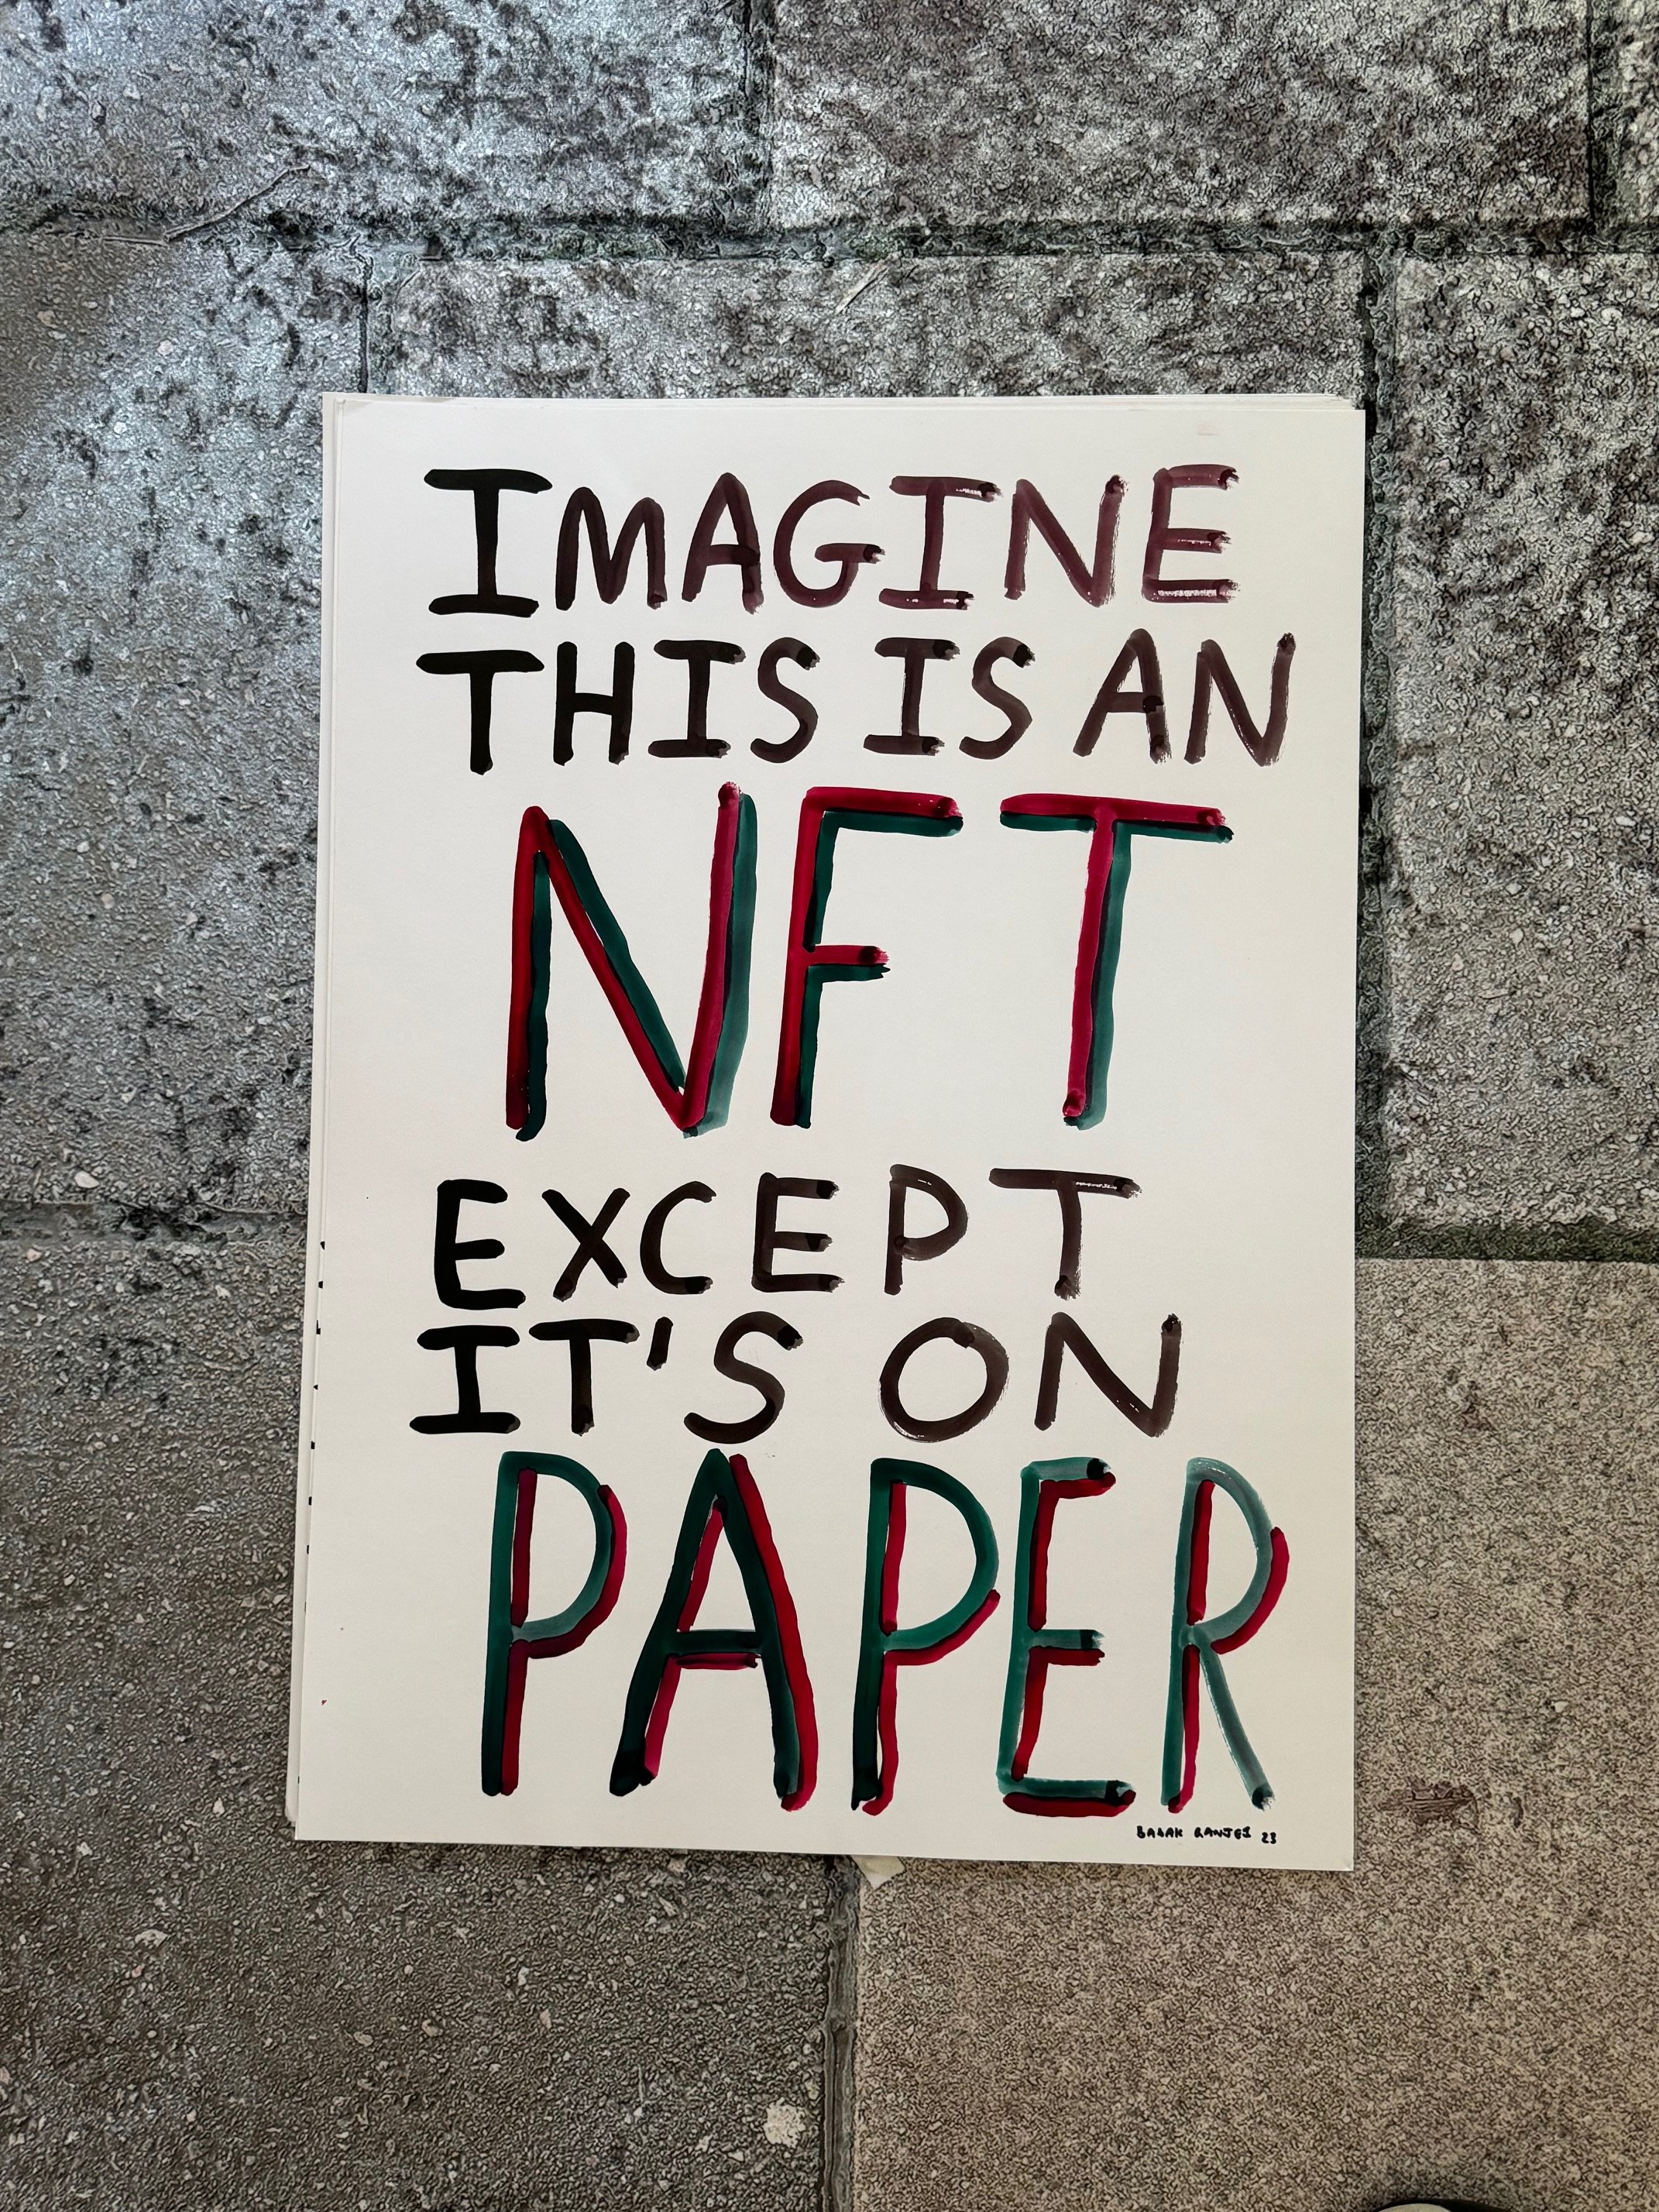 IMAGINE
THIS IS AN
NFT
EXCEPT
IT'S ON
PAPER
BABAK GANJEI 23